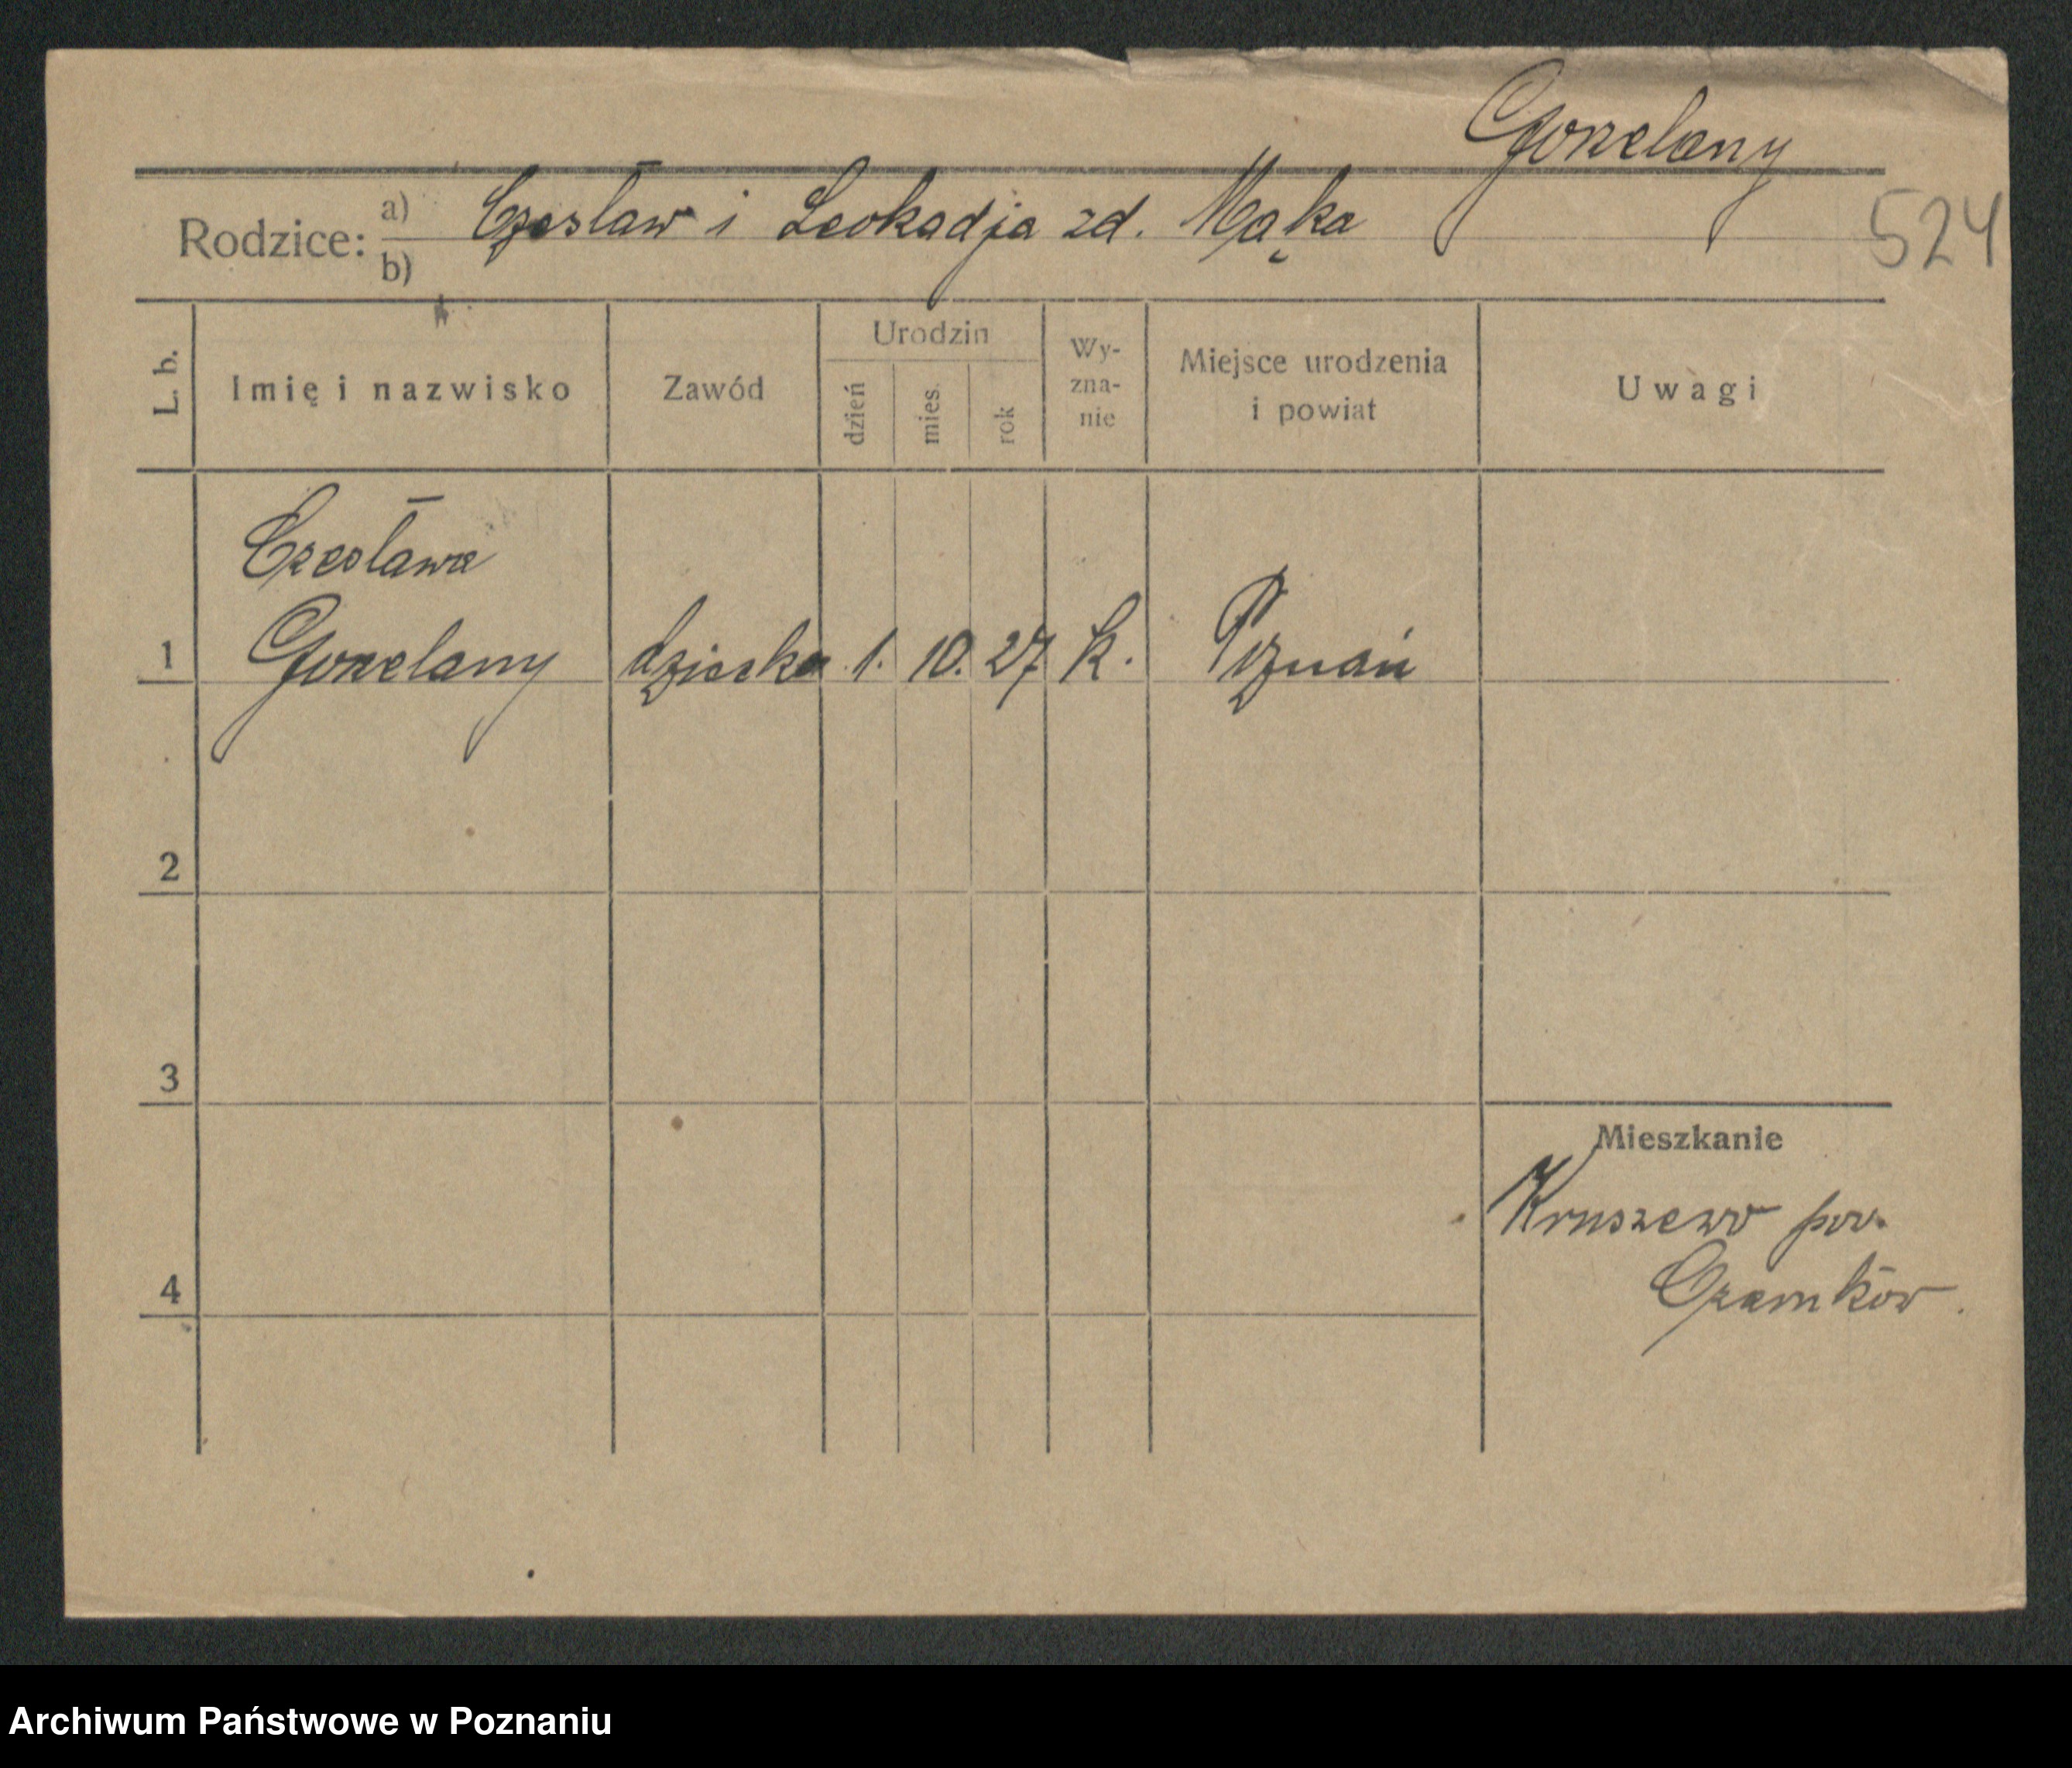 Gorzelany
524
Rodzice: a) Czesław i Leokadja zd. Mąka
b)
L. b. Imię i nazwisko Zawód Urodzin dzień mies. rok Wy-zna-nie Miejsce urodzenia i powiat Uwagi
Czesława
1 Gorzelany dziecko 1. 10. 27 k. Poznań
2
3
Mieszkanie
Kruszewo pow.
4 Czarnków.
Archiwum Państwowe w Poznaniu